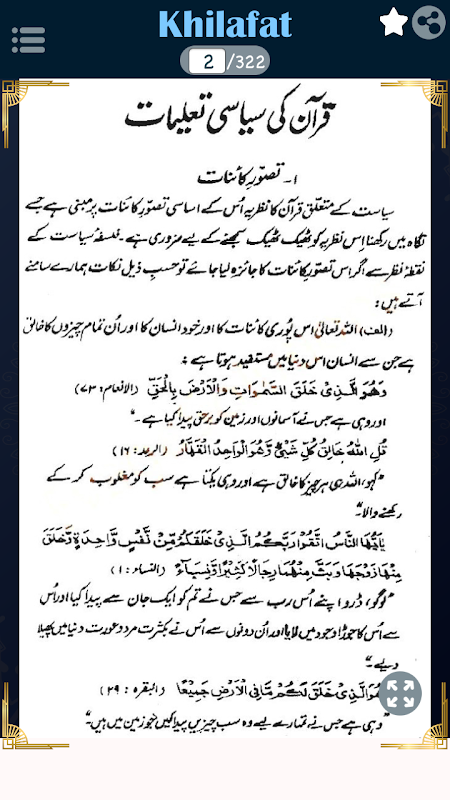 Khilafat
2/322
قرآن کی سیاسی تعلیمات
۱- تصوّرِ کائنات
سیاست کے متعلق قرآن کا نظریہ اُس کے اساسی تصوّرِ کائنات پر مبنی ہے جسے
نگاہ میں رکھنا اِس نظریہ کو ٹھیک ٹھیک سمجھنے کے لیے ضروری ہے۔ فلسفۂ سیاست کے
نقطۂ نظر سے اگر اس تصوّرِ کائنات کا جائزہ لیا جائے تو حسبِ ذیل نکات ہمارے سامنے
آتے ہیں:
(الف) اللہ تعالیٰ اس پوری کائنات کا اور خود انسان کا اور اُن تمام چیزوں کا خالق
ہے جن سے انسان اس دنیا میں مستفید ہوتا ہے:
وَهُوَ الَّذِیْ خَلَقَ السَّمٰوَاتِ وَالْاَرْضَ بِالْحَقِّ (الانعام: ۷۳)
اور وہی ہے جس نے آسمانوں اور زمین کو برحق پیدا کیا ہے۔"
قُلِ اللهُ خَالِقُ كُلِّ شَیْءٍ وَّهُوَ الْوَاحِدُ الْقَهَّارُ (الرعد: ۱۶)
"کہو، اللہ ہی ہر چیز کا خالق ہے اور وہی یکتا ہے سب کو مغلوب کر کے
رکھنے والا۔"
یٰاَیُّهَا النَّاسُ اتَّقُوْا رَبَّكُمُ الَّذِیْ خَلَقَكُمْ مِّنْ نَّفْسٍ وَّاحِدَةٍ وَّخَلَقَ
مِنْهَا زَوْجَهَا وَبَثَّ مِنْهُمَا رِجَالًا كَثِیْرًا وَّنِسَآءً (النساء: ۱)
"لوگو، ڈرو اپنے اُس رب سے جس نے تم کو ایک جان سے پیدا کیا اور اُس
سے اُس کا جوڑا وجود میں لایا اور اُن دونوں سے اُس نے بکثرت مرد و عورت دنیا میں پھیلا
دیے۔"
هُوَ الَّذِیْ خَلَقَ لَكُمْ مَّا فِی الْاَرْضِ جَمِیْعًا (البقرہ: ۲۹)
"وہی ہے جس نے تمہارے لیے وہ سب چیزیں پیدا کیں جو زمین میں ہیں۔"